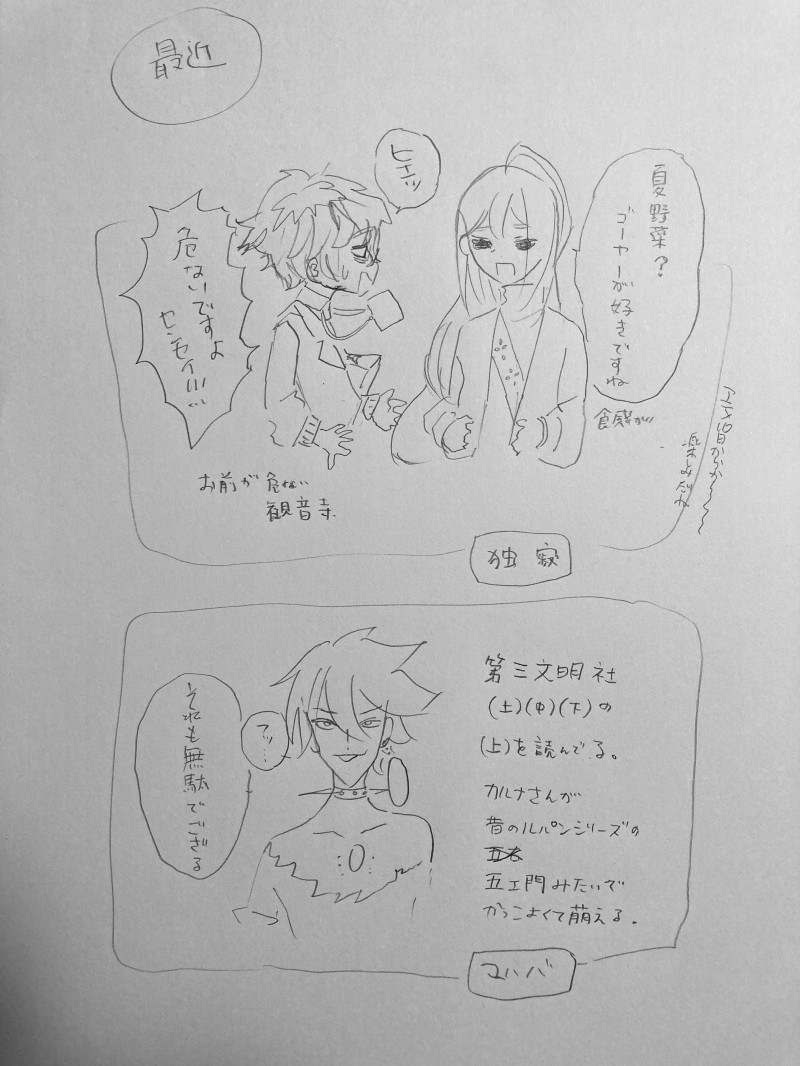 最近
ヒエッ
夏野菜?
ゴーヤーが好きですね
食感が
危ないですよ
センセイ!!!
お前が危ない
観音寺
楽しみだね
独寂
それも無駄でござる
アッ…
第三文明社
(土)(中)(下)の
(上)を読んでる。
カルナさんが
昔のルパンシリーズの
五ェ門みたいで
かっこよくて萌える。
マハバ